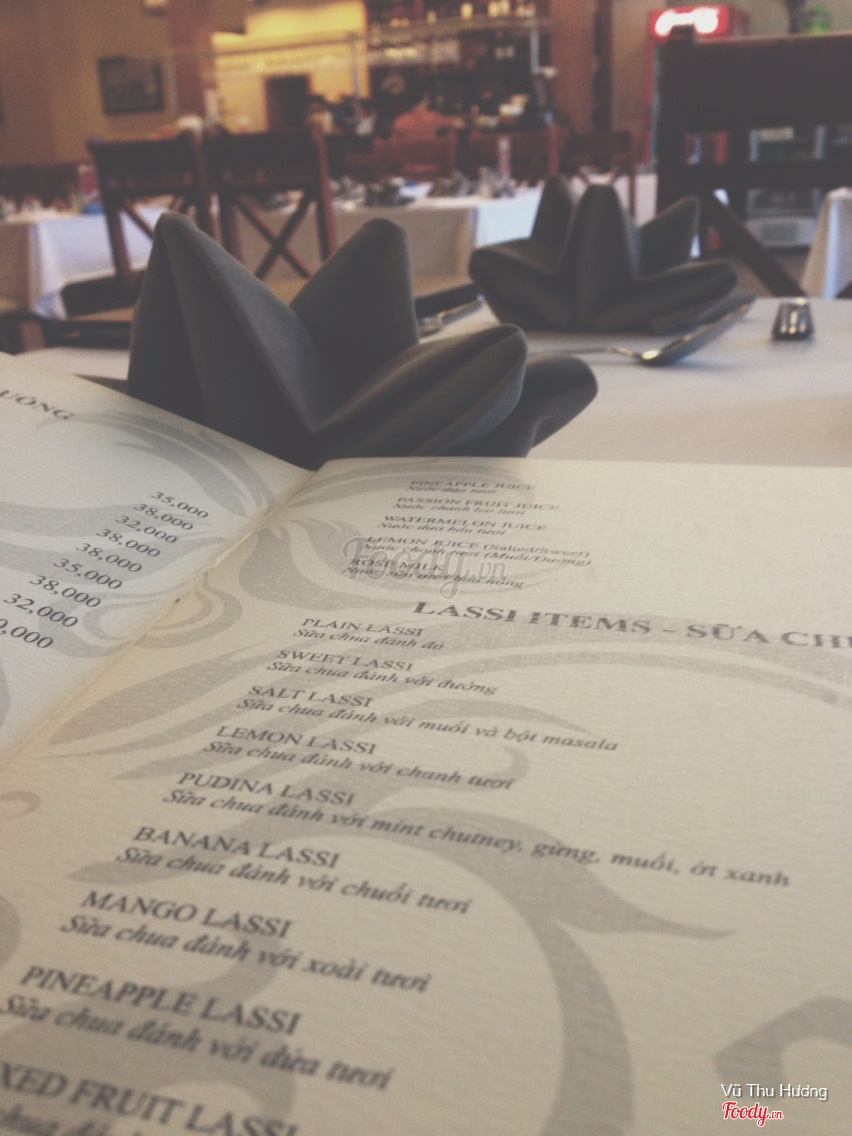 UỐNG
35,000
38,000
32,000
38,000
38,000
35,000
38,000
32,000
0,000
PINEAPPLE JUICE
Nước dứa tươi
PASSION FRUIT JUICE
Nước chanh leo tươi
WATERMELON JUICE
Nước dưa hấu tươi
LEMON JUICE (Salted/Sweet)
Nước chanh tươi (Muối/Đường)
ROSE MILK
hồng
LASSI ITEMS - SỮA CHU
PLAIN LASSI
Sữa chua đánh đá
SWEET LASSI
Sữa chua đánh với đường
SALT LASSI
Sữa chua đánh với muối và bột masala
LEMON LASSI
Sữa chua đánh với chanh tươi
PUDINA LASSI
Sữa chua đánh với mint chutney, gừng, muối, ớt xanh
BANANA LASSI
Sữa chua đánh với chuối tươi
MANGO LASSI
Sữa chua đánh với xoài tươi
PINEAPPLE LASSI
Sữa chua đánh với dứa tươi
XED FRUIT LASSI
Foody.vn
Vũ Thu Hương
Foody.vn